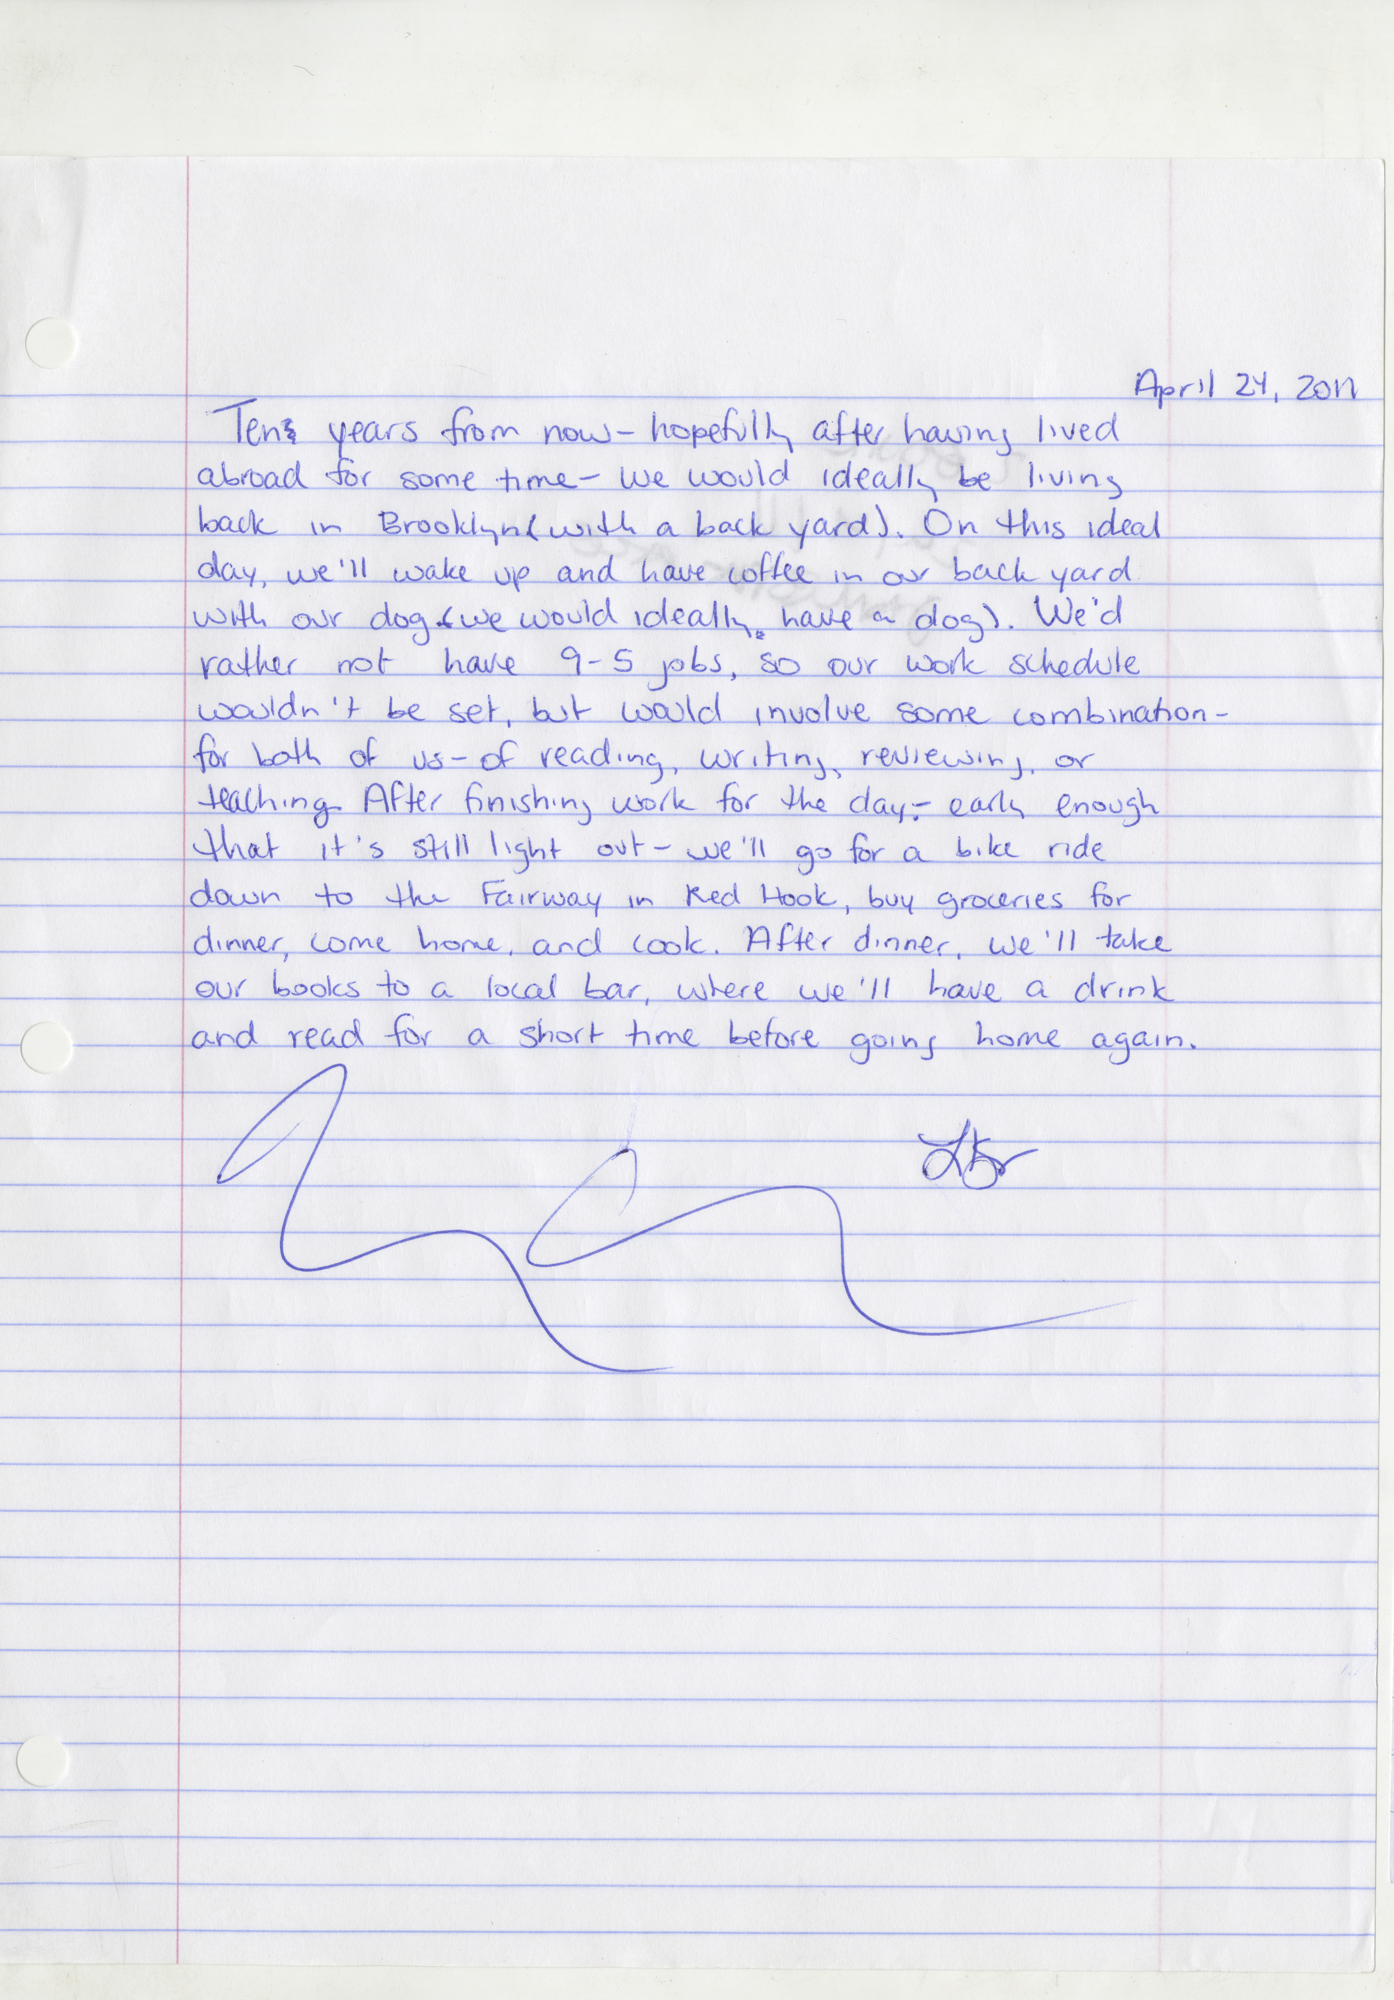 April 24, 2011
Ten years from now – hopefully after having lived
abroad for some time – we would ideally be living
back in Brooklyn (with a back yard). On this ideal
day, we'll wake up and have coffee in our back yard
with our dog (we would ideally have a dog). We'd
rather not have 9-5 jobs, so our work schedule
wouldn't be set, but would involve some combination –
for both of us – of reading, writing, reviewing, or
teaching. After finishing work for the day – early enough
that it's still light out – we'll go for a bike ride
down to the Fairway in Red Hook, buy groceries for
dinner, come home, and cook. After dinner, we'll take
our books to a local bar, where we'll have a drink
and read for a short time before going home again.